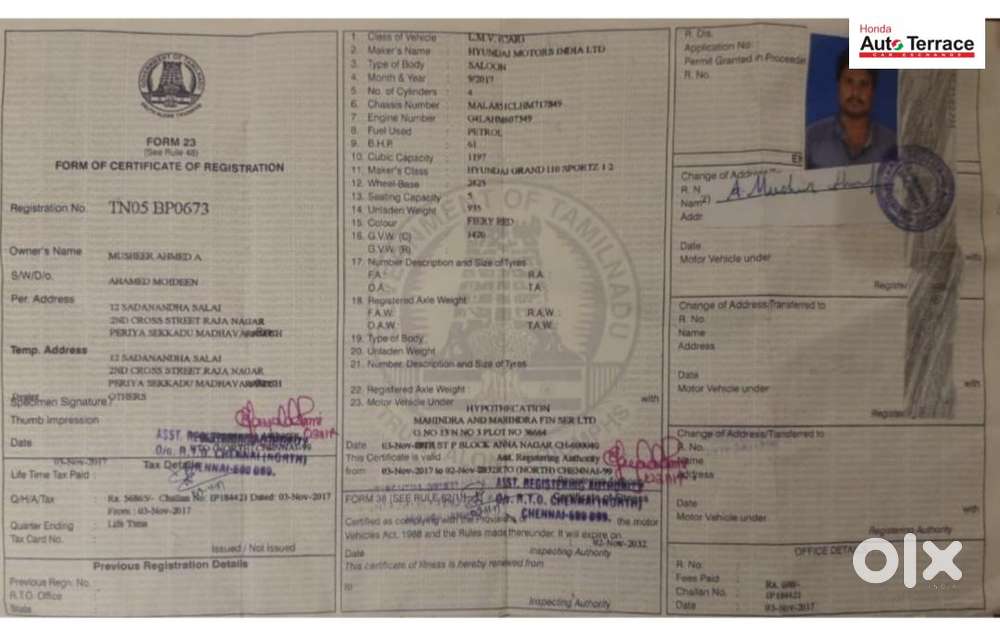 Honda
Auto Terrace
CAR EXCHANGE
GOVERNMENT OF TAMILNADU
FORM 23
(See Rule 48)
FORM OF CERTIFICATE OF REGISTRATION
Registration No. TN05 BP0673
Owner's Name MUSHEER AHMED A
S/W/D/o. AHAMED MOIDEEN
Per. Address
12 SADANANDHA SALAI
2ND CROSS STREET RAJA NAGAR
PERIYA SEKKADU MADHAVARAM
Temp. Address
12 SADANANDHA SALAI
2ND CROSS STREET RAJA NAGAR
PERIYA SEKKADU MADHAVARAM
OTHERS
Specimen Signature /
Thumb Impression
Date
03-Nov-2017
ASST. REGISTERING AUTHORITY
O/o. R.T.O. CHENNAI (NORTH)
CHENNAI-600 099.
Tax Details
Life Time Tax Paid :
Q/H/A/Tax : Rs. 56865/- Challan No: IP184421 Dated: 03-Nov-2017
From : 03-Nov-2017
Quarter Ending : Life Time
Tax Card No. :
Issued / Not issued
Previous Registration Details
Previous Regn. No.
R.T.O. Office :
State
1. Class of Vehicle : L.M.V. (CAR)
2. Maker's Name : HYUNDAI MOTORS INDIA LTD
3. Type of Body : SALOON
4. Month & Year : 9/2017
5. No. of Cylinders : 4
6. Chassis Number : MALA851CLHM717849
7. Engine Number : G4LAHM607349
8. Fuel Used : PETROL
9. B.H.P. : 61
10. Cubic Capacity : 1197
11. Maker's Class : HYUNDAI GRAND I10 SPORTZ 1 2
12. Wheel-Base : 2425
13. Seating Capacity : 5
14. Unladen Weight : 935
15. Colour : FIERY RED
16. G.V.W. (C) : 1420
G.V.W. (R)
17. Number Description and Size of Tyres
F.A. : R.A. :
O.A. : T.A. :
18. Registered Axle Weight
F.A.W. : R.A.W. :
O.A.W. : T.A.W. :
19. Type of Body :
20. Unladen Weight
21. Number, Description and Size of Tyres
22. Registered Axle Weight :
23. Motor Vehicle Under with
HYPOTHECATION
MAHINDRA AND MAHINDRA FIN SER LTD
PLOT NO 36684
Date 03-Nov-2017 ST P BLOCK ANNA NAGAR CH-600040
This Certificate is valid Asst. Registering Authority
from 03-Nov-2017 to 02-Nov-2032 RTO (NORTH) CHENNAI-99
ASST. REGISTERING AUTHORITY
O/o. R.T.O. CHENNAI (NORTH)
CHENNAI-600 099.
FORM 38 (SEE RULE 62(1))
Certified as complying with the Provisions of the motor
Vehicles Act, 1988 and the Rules made thereunder. It will expire on
02-Nov-2032
Date Inspecting Authority
This certificate of fitness is hereby renewed from
to
Inspecting Authority
R. Dis.
Application No.
Permit Granted in Proceedings
R. No.
Change of Address
R. N
Name
Addr
Date
Motor Vehicle under with
Change of Address/Transferred to
R. No.
Name
Address
Date
Motor Vehicle under with
Change of Address/Transferred to
R. No.
Name
Address
Date
Motor Vehicle under with
Registering Authority
OFFICE DETAILS
R. No. :
Fees Paid : Rs. 600/-
Challan No. : IP184421
Date : 03-Nov-2017
olx
INDIA